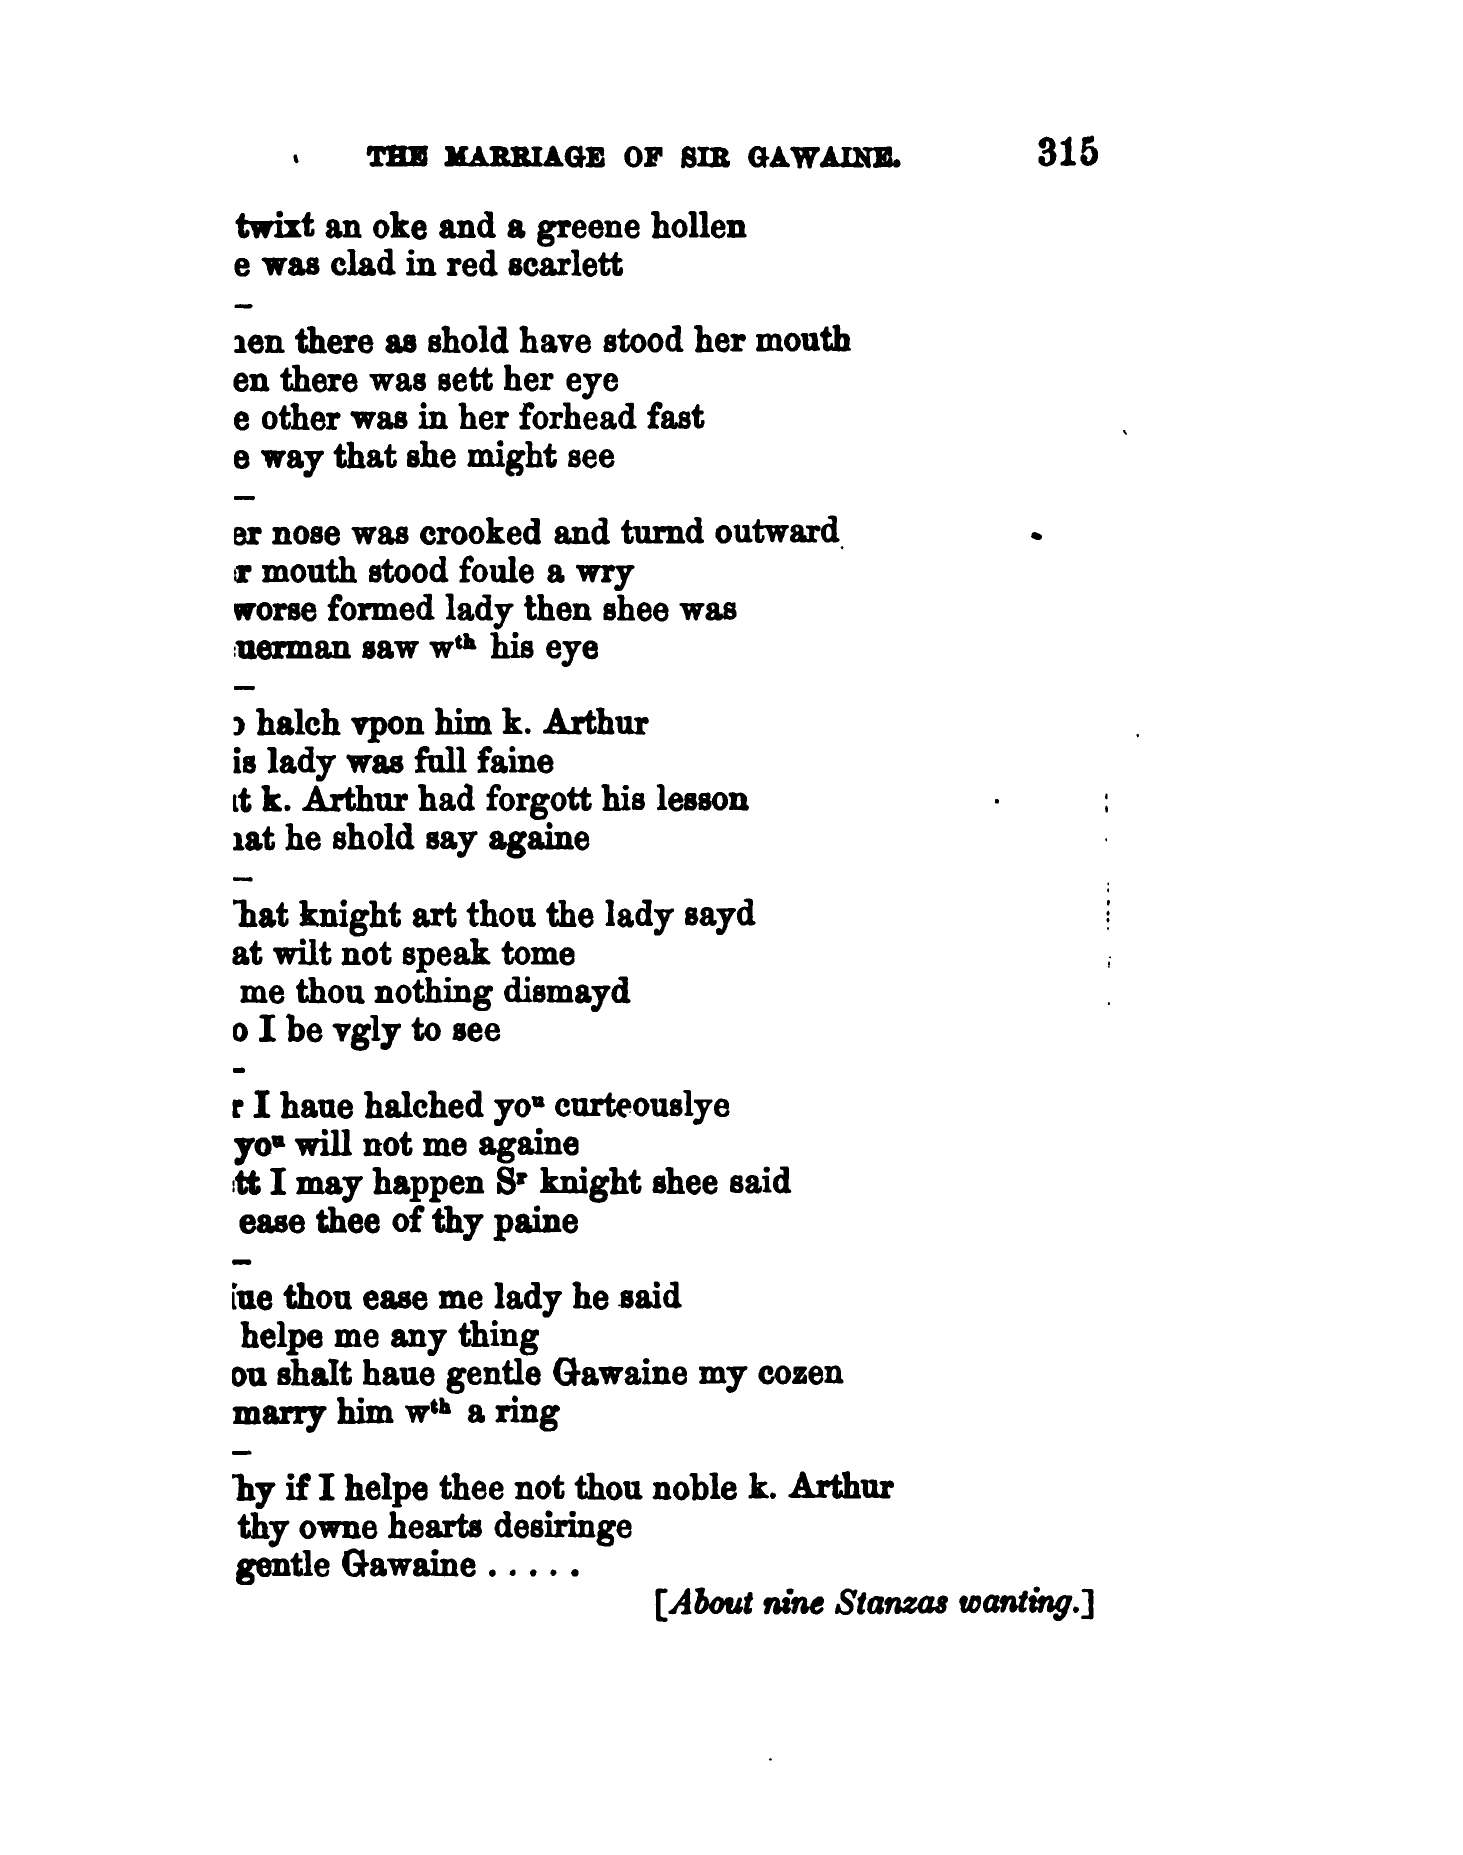 THE MARRIAGE OF SIR GAWAINE. 315
twixt an oke and a greene hollen
e was clad in red scarlett
en there as shold have stood her mouth
en there was sett her eye
e other was in her forhead fast
e way that she might see
er nose was crooked and turnd outward
r mouth stood foule a wry
worse formed lady then shee was
uerman saw wᵗʰ his eye
halch vpon him k. Arthur
is lady was full faine
t k. Arthur had forgott his lesson
at he shold say againe
hat knight art thou the lady sayd
at wilt not speak tome
me thou nothing dismayd
o I be vgly to see
r I haue halched yoᵘ curteouslye
yoᵘ will not me againe
tt I may happen Sʳ knight shee said
ease thee of thy paine
iue thou ease me lady he said
helpe me any thing
ou shalt haue gentle Gawaine my cozen
marry him wᵗʰ a ring
hy if I helpe thee not thou noble k. Arthur
thy owne hearts desiringe
gentle Gawaine . . . . .
[About nine Stanzas wanting.]